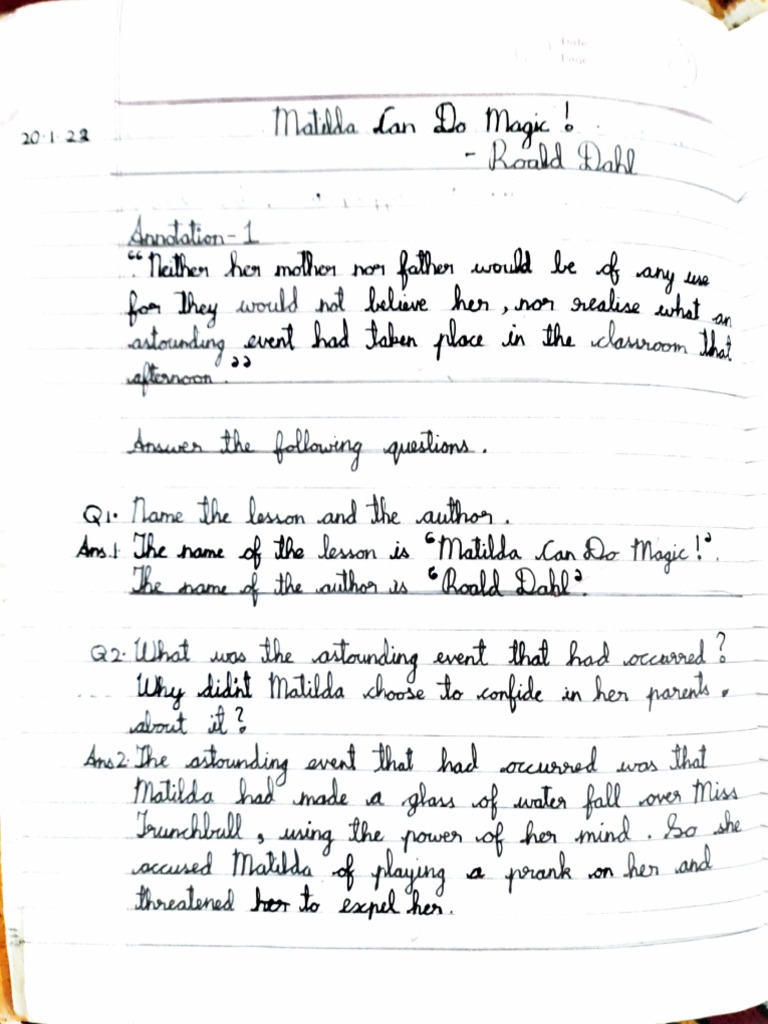 Date
Page
20.1.22
Matilda Can Do Magic!
- Roald Dahl
Annotation-1
"Neither her mother nor father would be of any use
for They would not believe her, nor realise what an
astounding event had taken place in the classroom that
afternoon."
Answer the following questions.
Q1. Name the lesson and the author.
Ans.1 The name of the lesson is 'Matilda Can Do Magic!'.
The name of the author is 'Roald Dahl'.
Q2. What was the astounding event that had occurred?
Why didn't Matilda choose to confide in her parents.
about it?
Ans2. The astounding event that had occurred was that
Matilda had made a glass of water fall over Miss
Trunchbull, using the power of her mind. So she
accused Matilda of playing a prank on her and
threatened her to expel her.